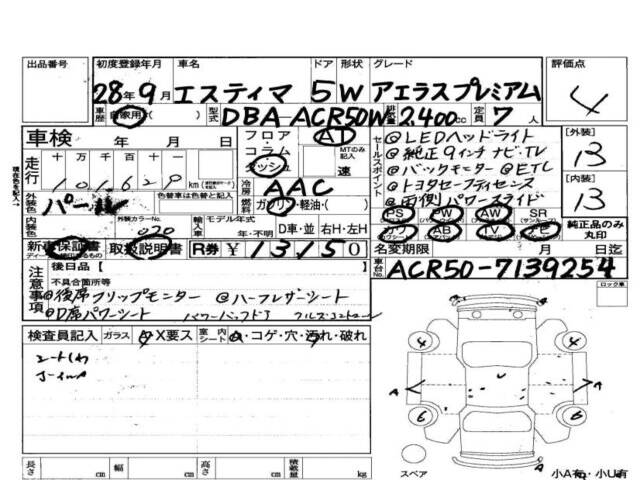 出品番号 初度登録年月 車名 ドア 形状 グレード 評価点
28年9月 エスティマ 5 W アエラスプレミアム 4
車歴 自家用・( ) 型式 DBA ACR50W 排気量 2,400cc 定員 7人
車検 年 月 日
フロア・コラム・ダッシュ AT MTのみ記入 速
走行 十万千百十一
101629 km
冷房 AAC
燃料 ガソリン・軽油・( )
セールスポイント
@LEDヘッドライト
@純正9インチナビ・TV
@バックモニター @ETC
@トヨタセーフティセンス
@両側パワースライド
[外装] 13
[内装] 13
外装色 パール 色替車は色替と記入
内装色 外装カラーNo. 020 輸入車 モデル年式 年・不明 D車・並 右H・左H
PS PW AW SR
カワ AB TV ナビ
純正品のみ丸印
新車保証書 取扱説明書 R券 ¥13150
名変期限 月 日迄
車台No. ACR50-7139254
注意事項
後日品[ ]
不具合箇所等
@後席フリップモニター @ハーフレザーシート
@D席パワーシート パワーバックドア クルーズコントロール
ロック車
検査員記入 ガラス A・X要ス 室内シート・コゲ・穴・汚れ・破れ
4 4
A A
6 6
スペア A
小A有・小U有
長さ cm 幅 cm 高さ cm 積載量 kg